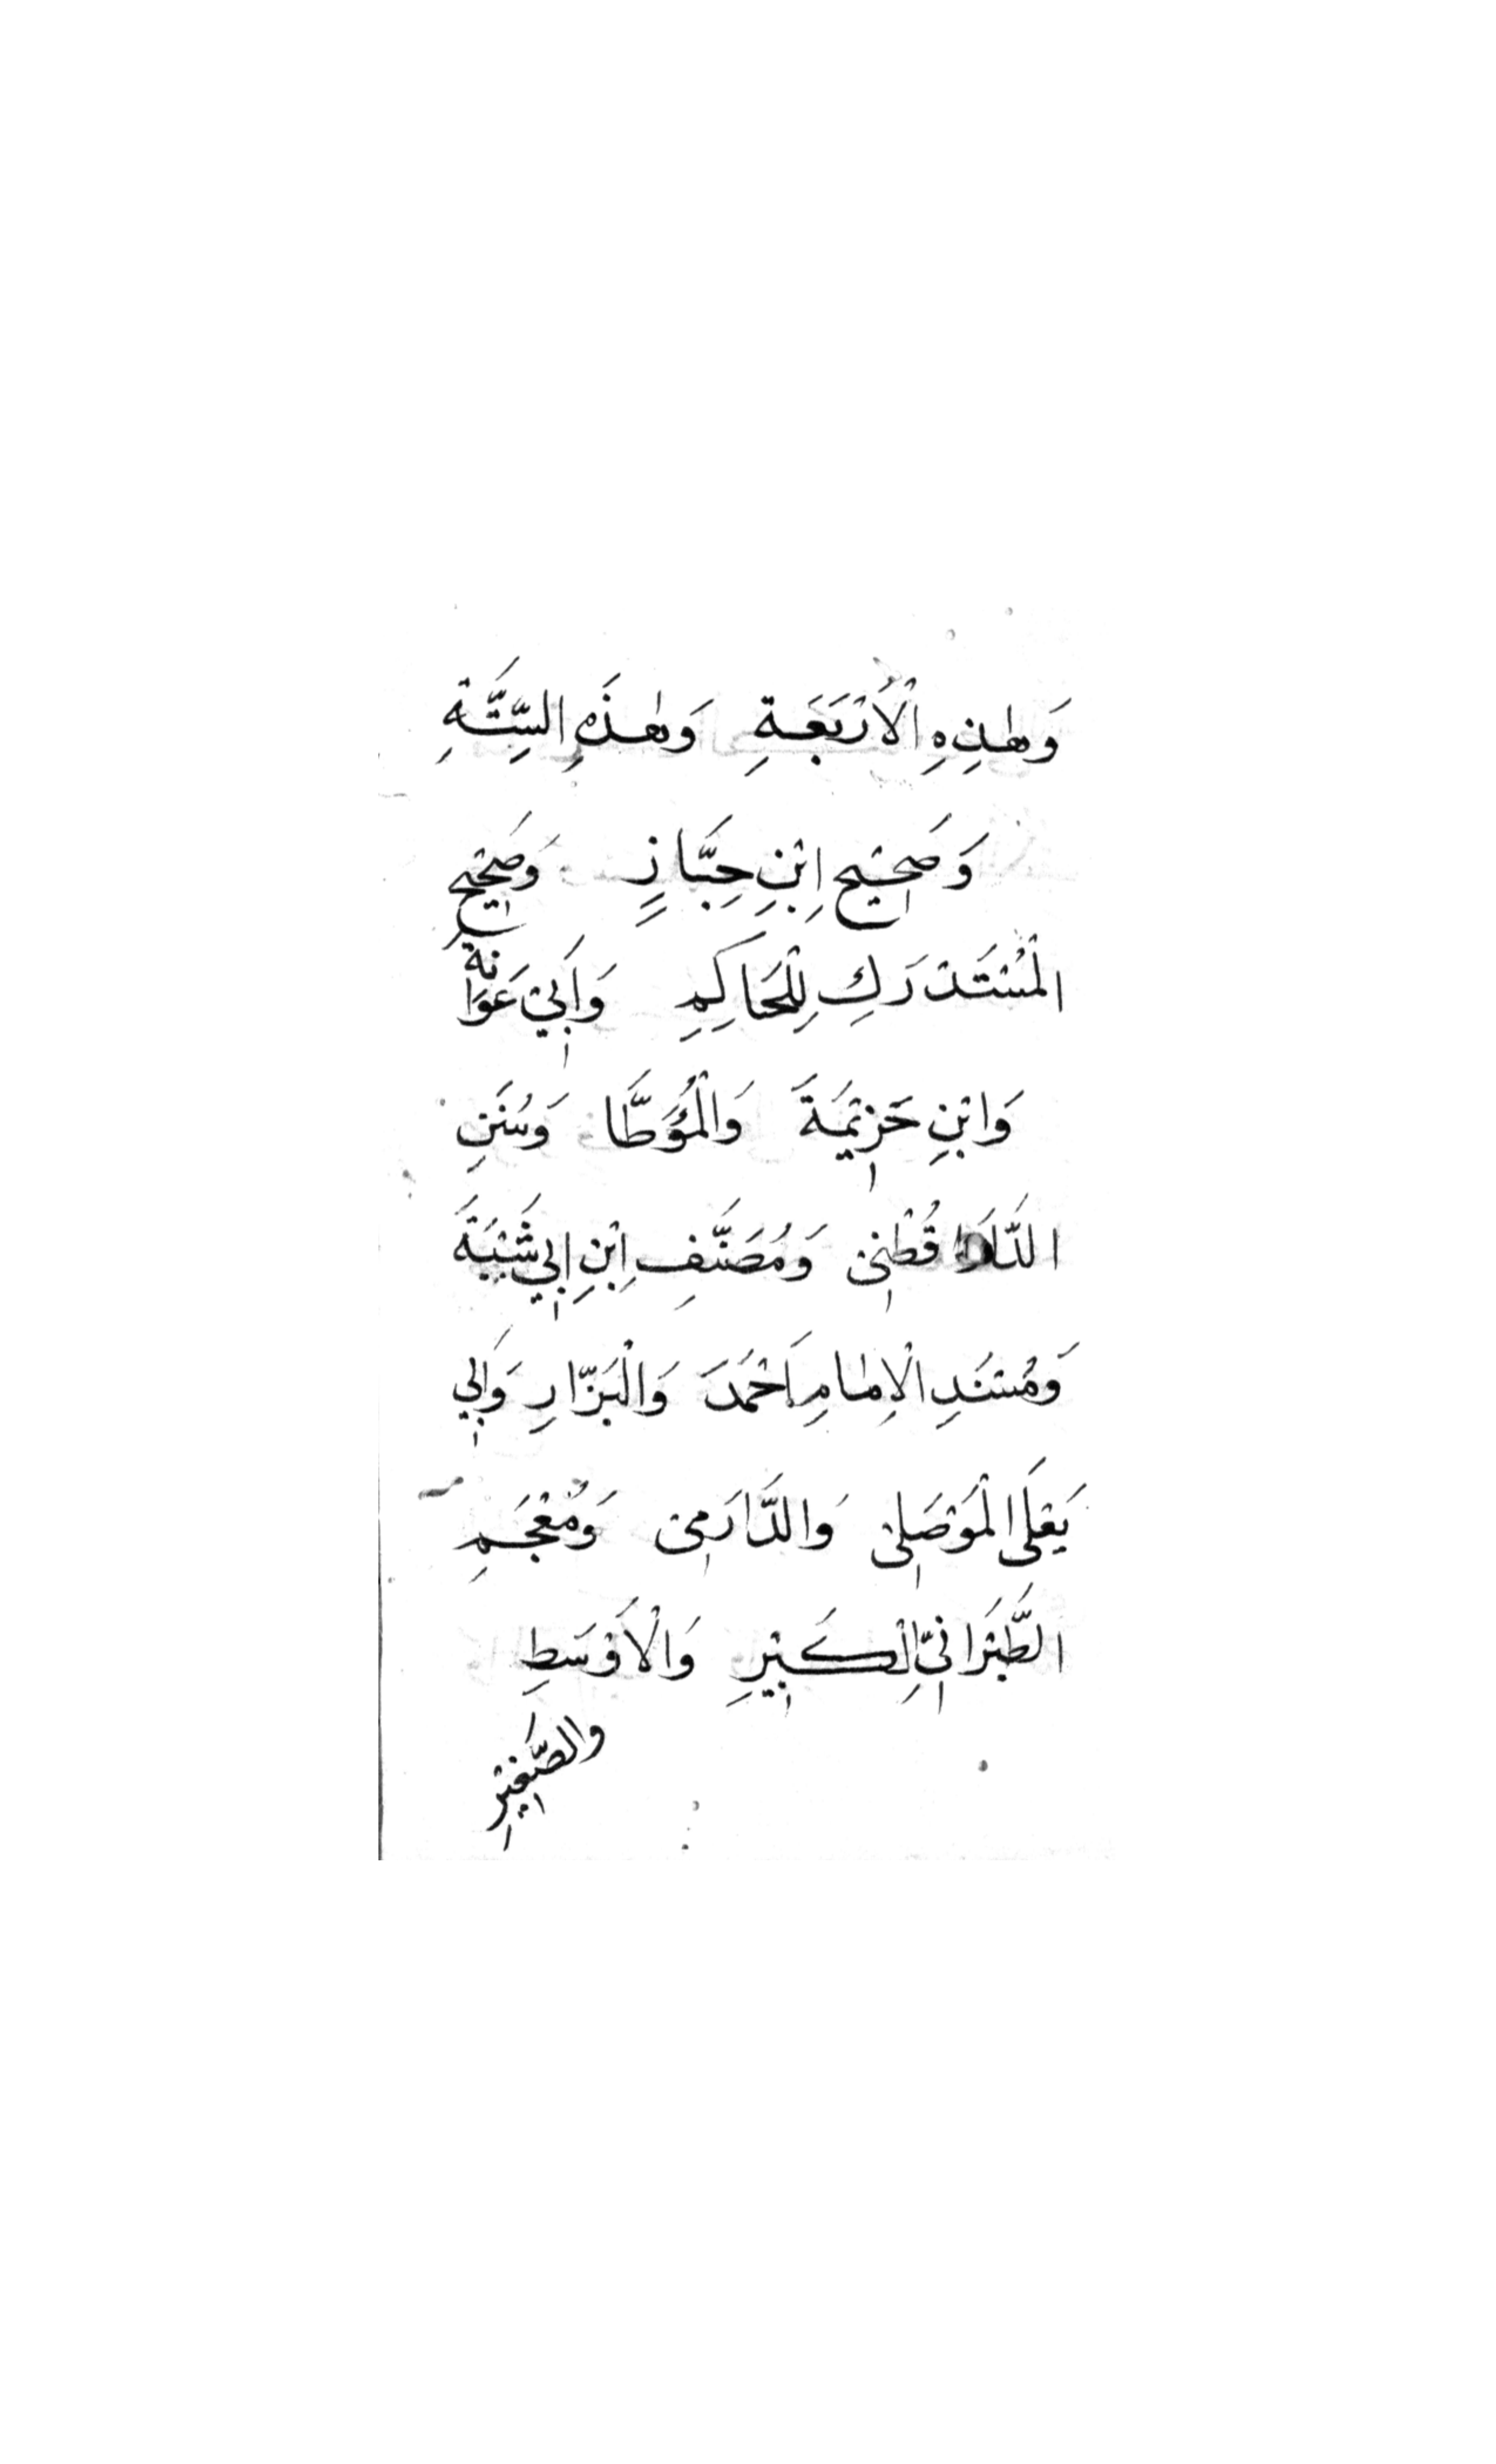 وَهٰذِهِ الْاَرْبَعَةِ وَهٰذِهِ السِّتَّةِ
وَصَحِيْحِ اِبْنِ حِبَّانٍ وَصَحِيْحِ
الْمُسْتَدْرَكِ لِلْحَاكِمِ وَاَبِيْ عَوَانَةَ
وَابْنِ خَزِيْمَةَ وَالْمُؤَطَّا وَسُنَنِ
الدَّارَ قُطْنِى وَمُصَنَّفِ اِبْنِ اَبِي شَيْبَةَ
وَمُسْنَدِ الْاِمَامِ اَحْمَدَ وَالْبَزَّارِ وَاَبِي
يَعْلَى الْمَوْصَلِى وَالدَّارَمِى وَمُعْجَمِ
الطَّبْرَانِيِّ الْكَبِيْرِ وَالْاَوْسَطِ
والصَّغِيْرِ